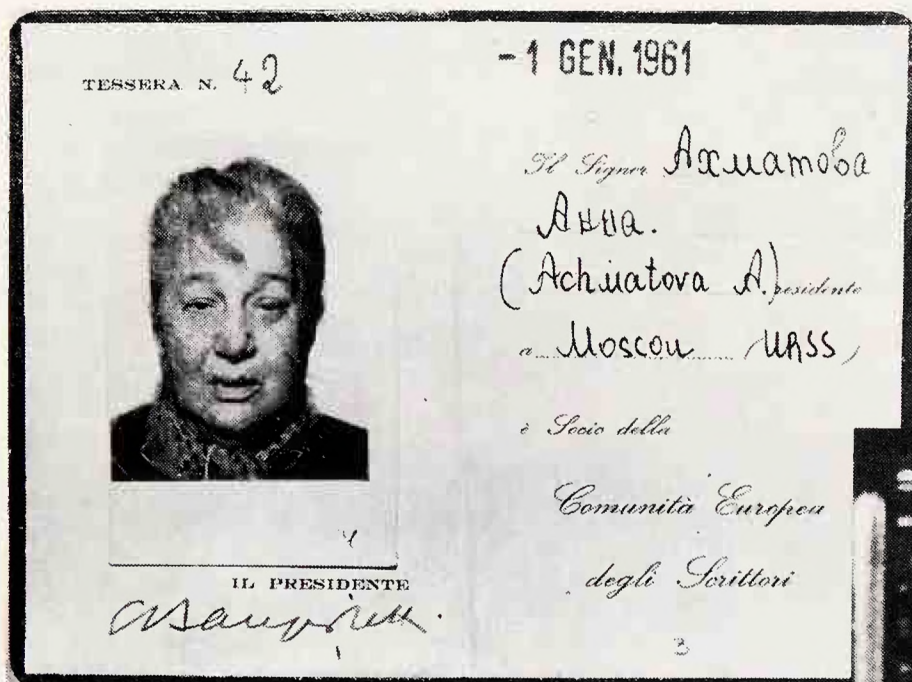 TESSERA N. 42
IL PRESIDENTE
-1 GEN. 1961
Il Signor Ахматова
Анна.
(Achmatova A.) residente
a Moscou (URSS)
è Socio della
Comunità Europea
degli Scrittori
3